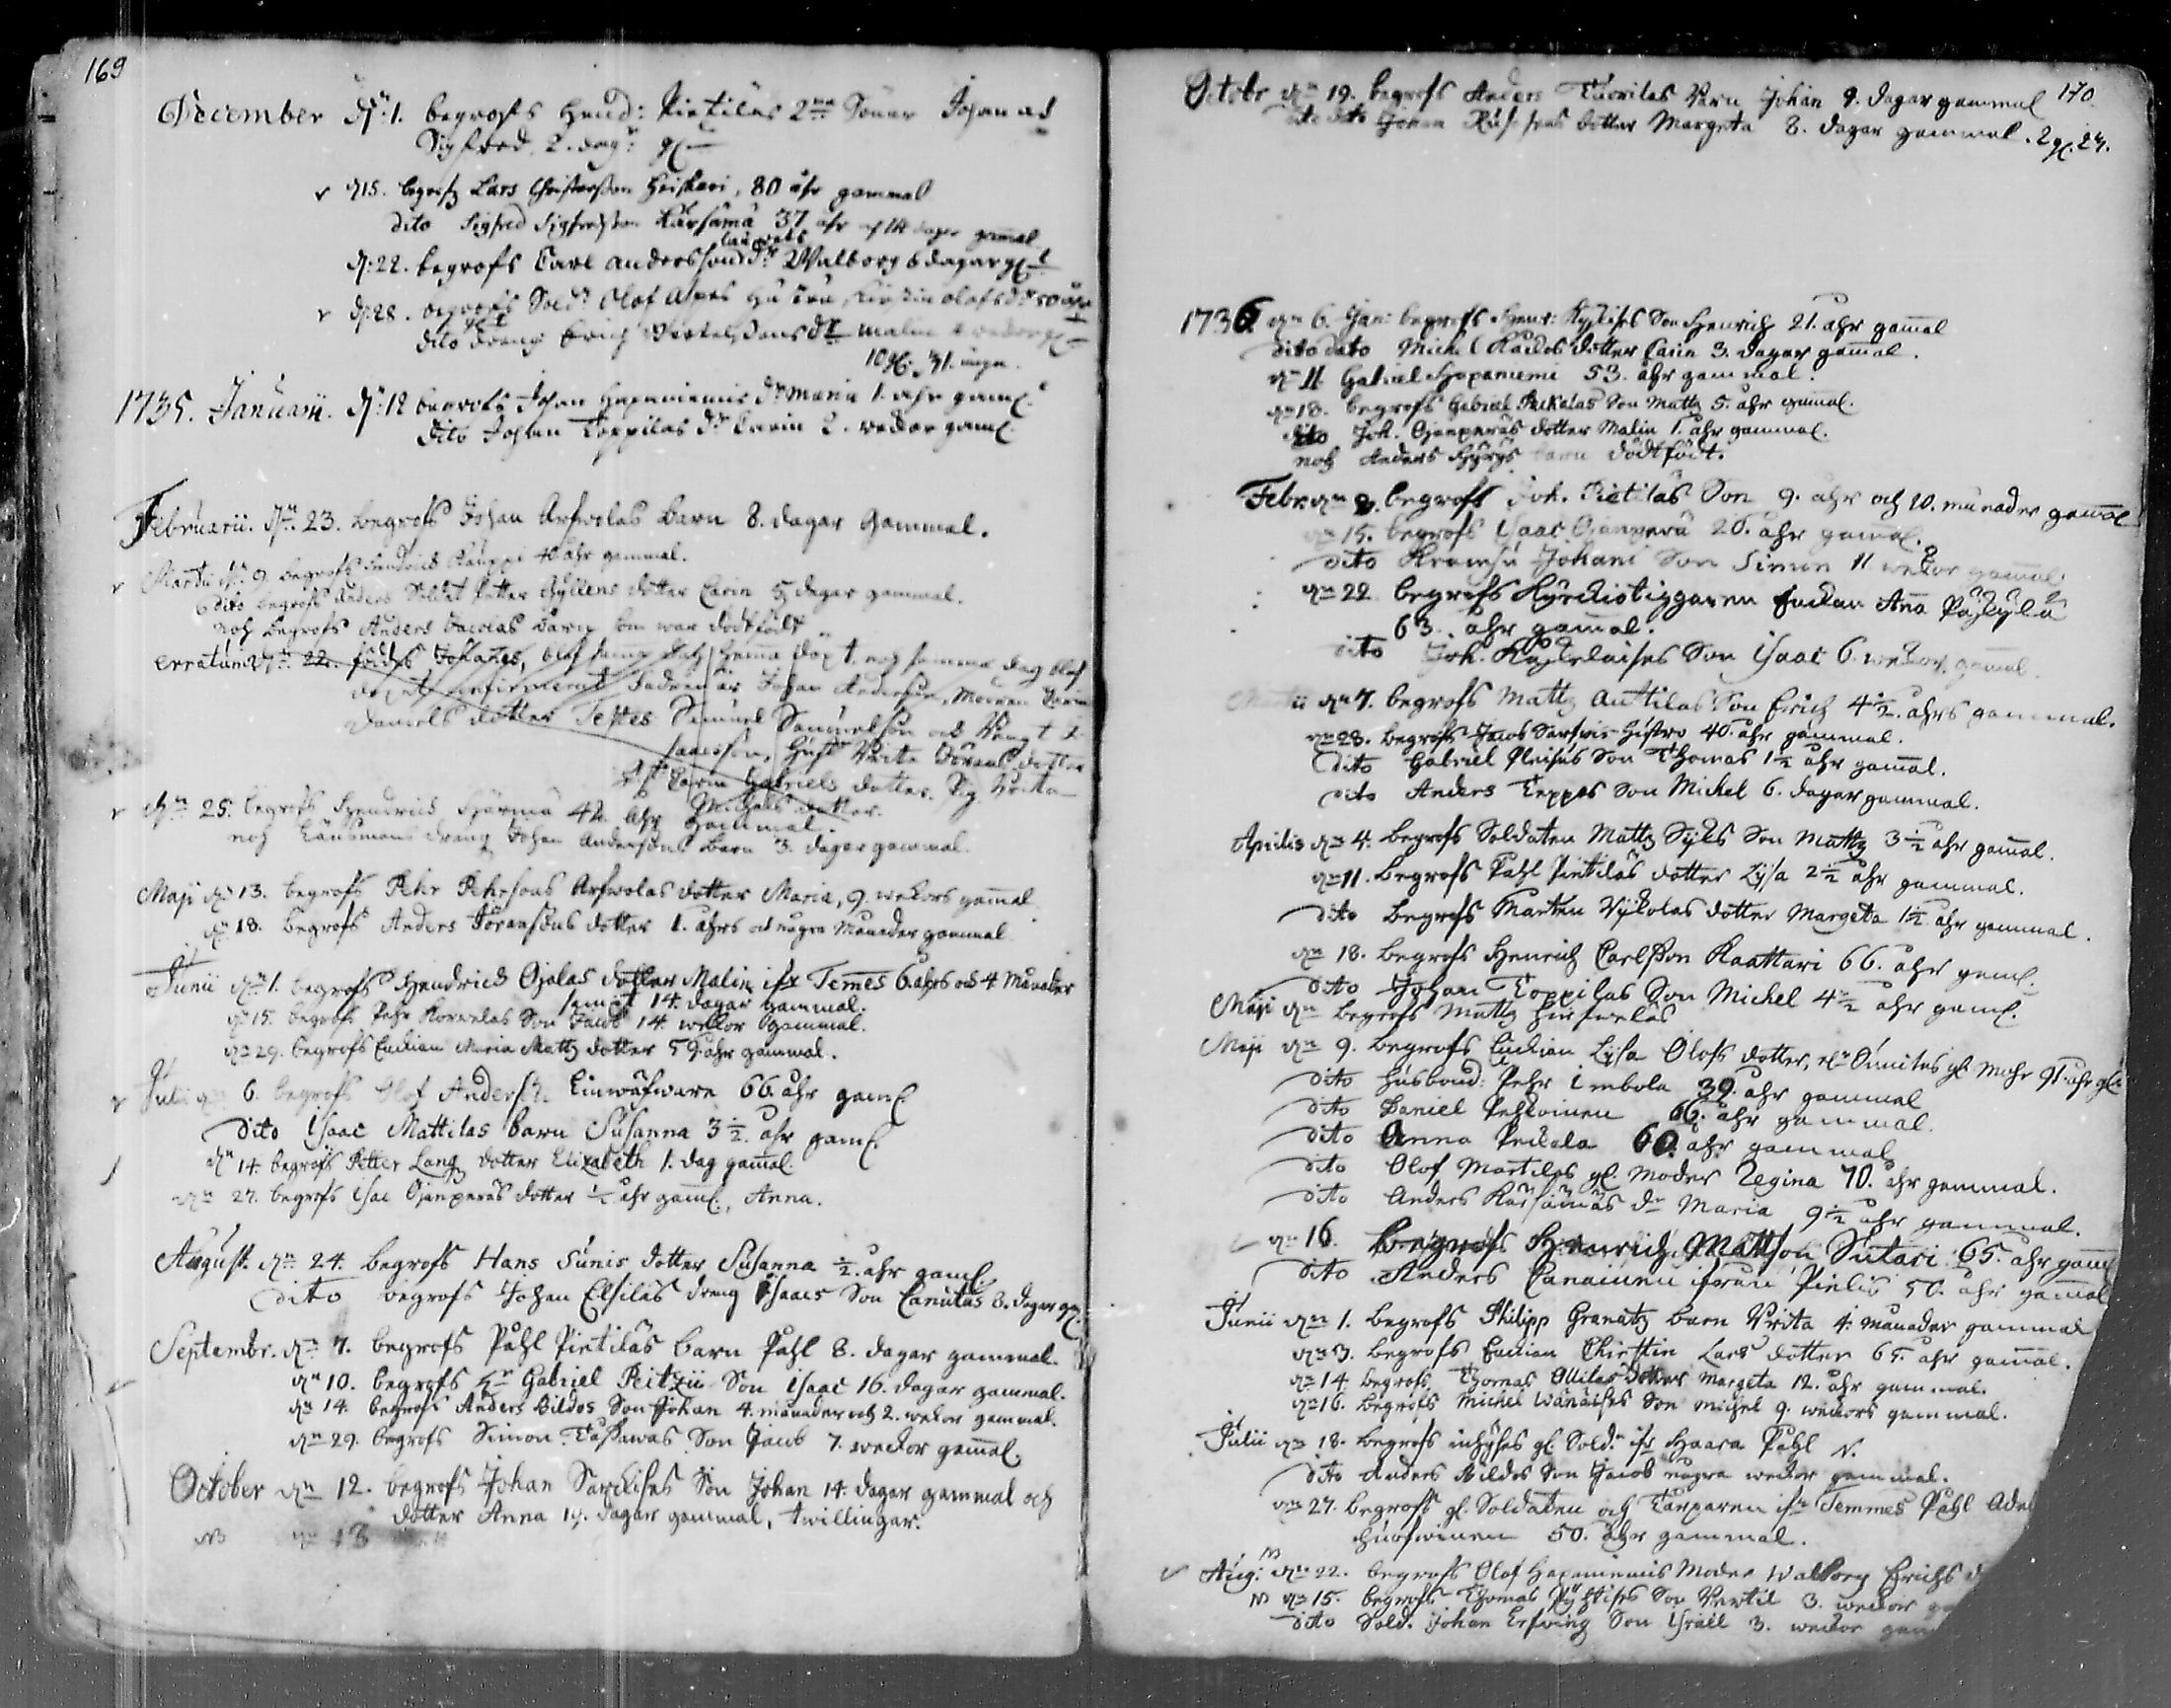 169
December dn: 1. begrofs Hend: Pietilas 2ne Söner Johan och
Sigfred 2. dag: gl
d 15. begrofs Lars Christersson Heiskari, 80 åhr gammal
dito Sigfred Sigfredsson Kärsämä 37 åhr och 14 dagar gamal
d: 22. begrofs Carl Anderssons dr Walborg 6 dagar gl
d: 28. begrofs Sold: Olof Alpes hustru, Kirstin Olofs dr 50 åhr
dito dreng Erich dr Malin 4 wekor gl
10 gl. 31. unga.
1735. Januarii. dn: 12 begrofs Johan Hapaniemis dr Maria 1. åhr gaml.
dito Johan Toppilas dr Carin 2. wekor gaml
Februarii. dn. 23. begrofs Johan Arfwolas barn 8. dagar Gammal.
Martii dn 9. begrofs Hendrich Kauppi 40 åhr gammal.
dito begrofs Anders Soldat Petter Gyllens dotter Carin 5 dagar gammal.
noch begrofs Anders barn som war dödfödt
erratum dn. 22. föddes Johanes, blef samma dag hema döpt. och samma dag blef
confirmerat Fadren är Johan Anderson, Modren Carin
Daniels dotter Testes Samuel Samuelson och Bengt
Isacsson, Hust Brita Göransdotter
Carin Gabriels dotter. Pig Brita
Michels dotter.
dn 25. begrofs Hendrich Härmä 42. åhr Gammal.
noch Länsmans dreng Johan Andersons barn 3. dagar gammal.
Maji dn 13. begrofs Pehr Pehrsons Arfwolas dotter Maria, 9. wekors gamal
dn 18. begrofs Anders Göransons dotter 1. åhrs och några Månader gammal
Junii dn 1. begrofs Hendrich Ojalas dotter Malin ifr Temes 6 åhrs och 4 Månader
samt 14. dagar gammal.
dn 15. begrofs Pehr Korwelas Son Jacob 14. wekor gammal.
dn 29. begrofs Enkian Maria Matz dotter 59 åhr gammal.
Julii dn 6. begrofs Olof Anders: Linwäfware 66. åhr gaml
dito Isaac Mattilas barn Susanna 3 1/2. åhr gaml.
dn 14. begrofs Petter Lang dotter Elizabeth 1. dag gamal.
dn 27. begrofs Isac Ojanperäs dotter 1/2 åhr gaml., Anna.
August. dn 24. begrofs Hans Sunis dotter Susanna 1/2. åhr gaml.
dito begrofs Johan Elsiläs dreng Isaacs Son Canutus 3. dagar gl
Septembr. dn 7. begrofs Påhl Pietiläs barn Påhl 8. dagar gammal.
dn 10. begrofs Hr Gabriel Peitzii Son Isaac 16. dagar gammal.
dn 14. begrofs Anders Bildos Son Johan 4. månader och 2. wekor gammal.
dn 29. begrofs Simon Taskawas Son Jacob 7. wekor gamal.
October dn 12. begrofs Johan Sarckises Son Johan 14. dagar gammal och
dotter Anna 14. dagar gammal, twillingar.
NB dn 13
170
Octobr dn 19. begrofs Anders Tuorilas Barn Johan 9. dagar gammal
dito dito Johan dotter Margeta 8. dagar gammal. 2 gl. 27.
1736 dn 6. Jan: begrofs Henr: Son Henrich 21. åhr gamal
dito dito Michel dotter Carin 3. dagar gamal.
dn 11 Gabriel Hapaniemi 53. åhr gammal.
dn 18. begrofs Gabriel Paikalas Son Mattz 5. åhr gamal.
dito Joh. Ojanperäs dotter Malin 1. åhr gammal.
noch Anders Hyrys barn dödfödt.
Febr. dn 8. begrofs Joh. Pietilas Son 9. åhr och 10. månader gamal
dn 15. begrofs Isaac Ojanperä 26. åhr gamal.
dito Johans Son Simon 11 wekor gamal.
dn 22 begrofs Kyrckiotiggaren Enckan Ana
63. åhr gamal.
dito Joh. Son Isaac 6. wekor gamal.
Martii dn 7. begrofs Mattz Anttilas Son Erich 4 1/2. åhrs gammal.
dn 28. begrofs Jacob Sarfwis Hustro 40. åhr gammal.
dito Gabriel Son Thomas 1 1/2 åhr gamal.
dito Anders Teppos Son Michel 6. dagar gammal.
Aprilis dn 4. begrofs Soldaten Mattz Syks Son Mattz 3 1/2 åhr gamal.
dn 11. begrofs Påhl Pietiläs dotter Lysa 2 1/2 åhr gammal.
dito begrofs Marten dotter Margeta 1 1/2 åhr gammal.
dn 18. begrofs Henrich Carlsson Kaattari 66. åhr gaml.
dito Johan Toppilas Son Michel 4 1/2 åhr gaml.
Maji dn begrofs Mattz
Maji dn 9. begrofs Enckian Lysa Olofs dotter, gl mohr 91 åhr gl.
dito Husbond: Pehr Imbola 39. åhr gammal
dito Daniel Pehkoinen 66. åhr gammal.
dito Anna Peckala 60. åhr gammal
dito Olof Martilas gl. Moder Regina 70. åhr gammal.
dito Anders Kärsämäs dr Maria 9 1/2 åhr gammal.
dn 16. begrofs Henrich Mattson Sutari 65. åhr gam
dito Anders Canainen ifrån Pielis 50. åhr gamal
Junii dn 1. begrofs Philipp Granatz barn Brita 4. månader gammal
dn 3. begrofs Enckian Chirstin Lars dotter 65. åhr gamal.
dn 14 begrofs Thomas Ollilas dotter Margeta 12. åhr gammal.
dn 16. begrofs Michel Wänäises Son Michel 9. weckors gammal.
Julii dn 18. begrofs inhyses gl. Sold. ifr Haara Påhl N.
dito Anders Bildos Son Jacob några weckor gammal.
dn 27. begrofs gl. Soldaten och Tarparen ifr Temmes Påhl Adel
50. åhr gammal.
Aug: dn 22. begrofs Olof Hapaniemis Moder Walborg Erichs d
dn 15. begrofs Thomas Son Bertil 3. weckor ga
dito Sold. Johan Erfwing Son Israel 3. weckor gam